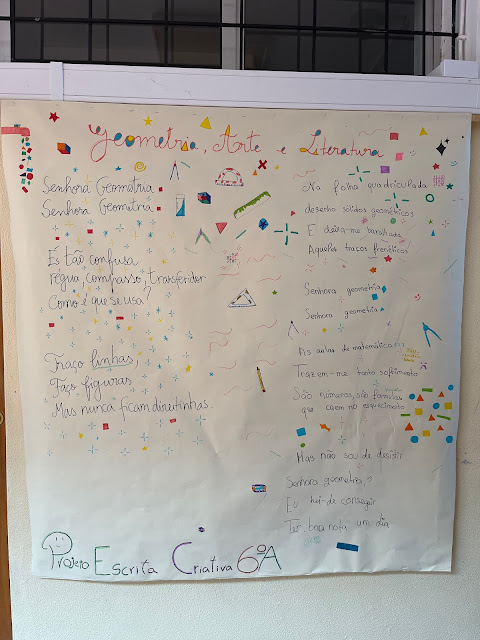 Geometria, Arte e Literatura
Senhora Geometria
Senhora Geometria
És tão confusa
régua, compasso, transferidor
Como é que se usa?
Traço linhas,
Faço figuras
Mas nunca ficam direitinhas.
Na folha quadriculada
desenho sólidos geométricos
E deixa-me baralhada
Aqueles traços frenéticos
Senhora geometria
Senhora geometria
As aulas de matemática
Trazem-me tanto sofrimento
São números, são fórmulas
que caem no esquecimento
Mas não sou de desistir
Senhora geometria,
Eu hei-de conseguir
Ter boa nota um dia
Projeto Escrita Criativa 6ºA